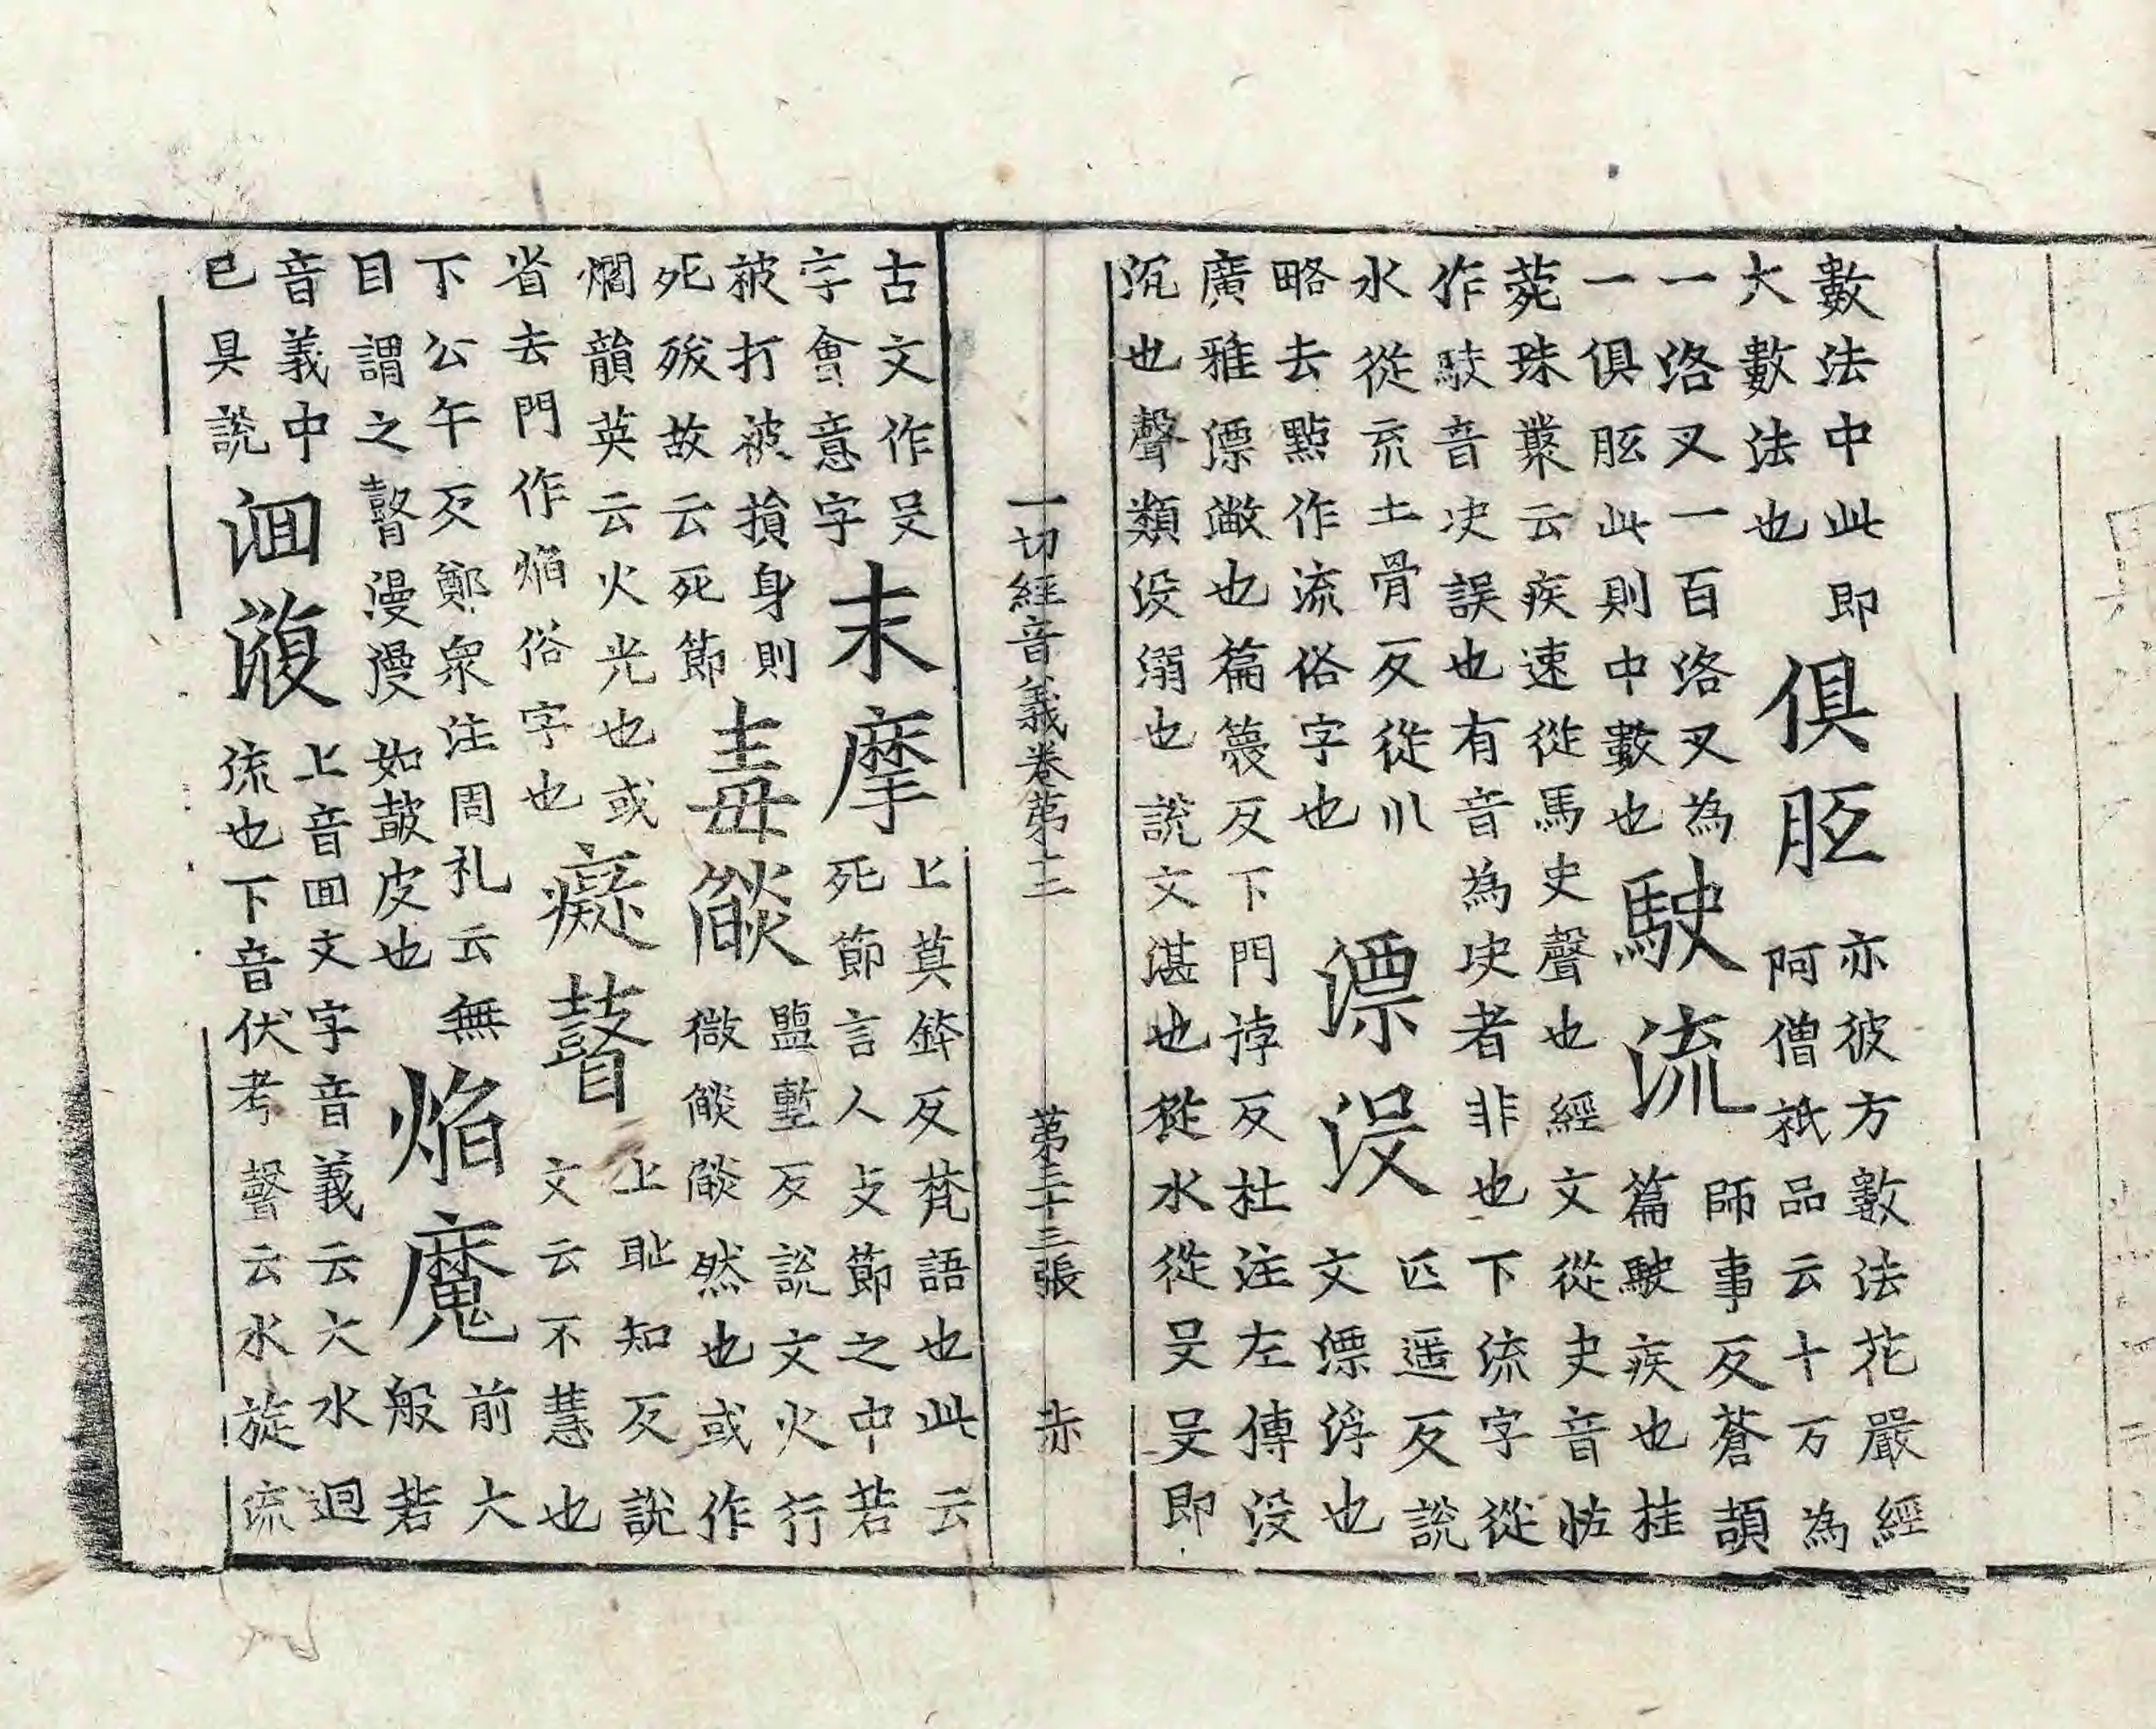 數法中此即
大數法也
俱胝
亦彼方數法花嚴經
阿僧祇品云十万為
一洛叉一百洛叉為
一俱胝此則中數也
駛流
師事反蒼頡
篇駛疾也桂
菀珠叢云疾速從馬史聲也經文從史音怯
作駃音决誤也有音為决者非也下流字從
水從㐬土骨反從巛
略去點作流俗字也
漂没
匹遥反說
文漂浮也
廣雅漂潎也篇篾反下門誖反杜注左傳没
沉也聲類没溺也說文湛也從水從𠬛𠬛即
一切經音義卷第十三 第三十三張 赤
古文作𠬛
字會意字
末摩
上莫鉢反梵語也此云
死節言人支節之中若
被打被損身則
死殁故云死節
毒燄
鹽壍反說文火行
微燄燄然也或作
爓韻英云火光也或
省去門作焔俗字也
癡瞽
上耻知反說
文云不慧也
下公午反鄭衆注周礼云無
目謂之瞽漫漫如皷皮也
焔魔
前大
般若
音義中
已具說
洄澓
上音回文字音義云大水迴
流也下音伏考聲云水旋流